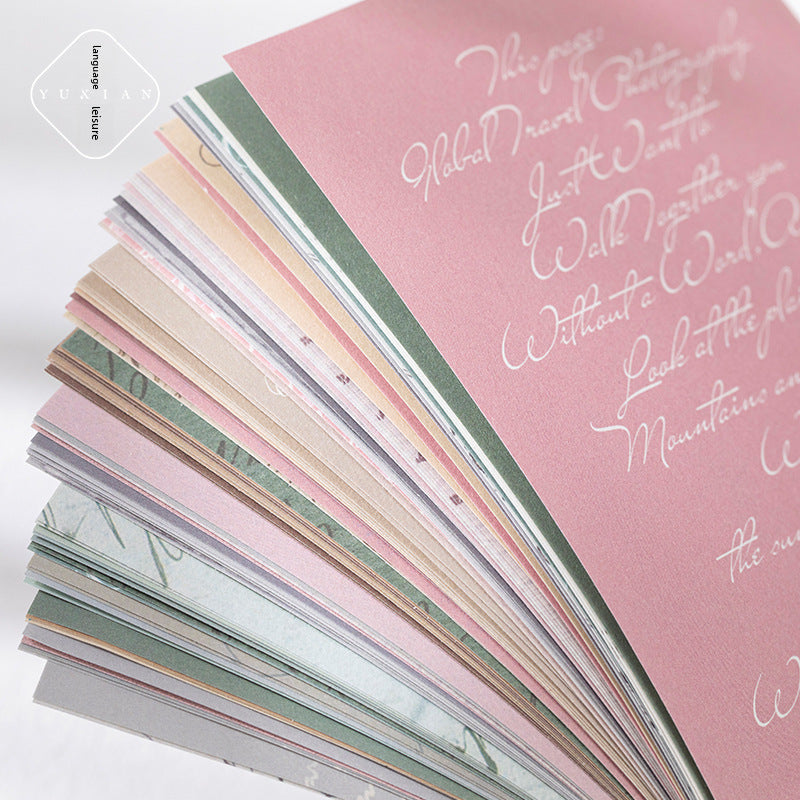 language
YUXIAN
leisure
This page
Global Travel Photography
Just Want to
Walk Together you
Without a Word.
Look at the
Mountains
the